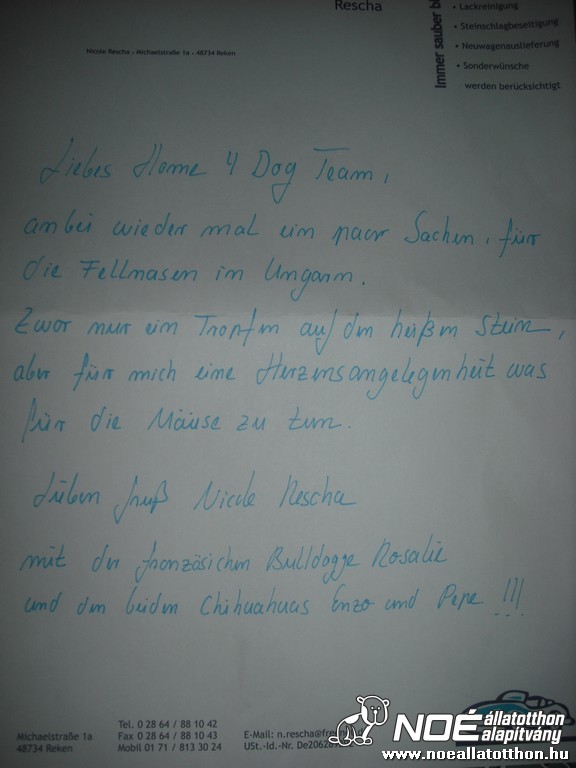 Rescha
Immer sauber
• Lackreinigung
• Steinschlagbeseitigung
• Neuwagenauslieferung
• Sonderwünsche
werden berücksichtigt
Nicole Rescha - Michaelstraße 1a - 48734 Reken
Liebes Home 4 Dog Team,
anbei wieder mal ein paar Sachen, für
die Fellnasen in Ungarn.
Zwar nur ein Tropfen auf den heißen Stein,
aber für mich eine Herzensangelegenheit was
für die Mäuse zu tun.
Lieben Gruß Nicole Rescha
mit der französichen Bulldogge Rosalie
und den beiden Chihuahuas Enzo und Pepe !!!
Michaelstraße 1a
48734 Reken
Tel. 0 28 64 / 88 10 42
Fax 0 28 64 / 88 10 43
Mobil 01 71 / 813 30 24
E-Mail: n.rescha@fre
USt.-Id.-Nr. De2062
NOÉ állatotthon alapítvány
www.noeallatotthon.hu